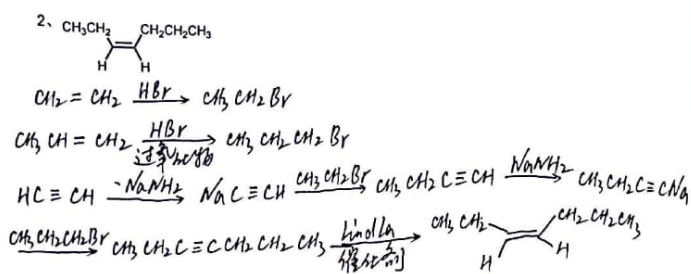 2、 CH₃CH₂ CH₂CH₂CH₃
H H
CH₂ = CH₂ HBr→ CH₃CH₂Br
CH₃CH = CH₂ HBr→ CH₃CH₂CH₂Br
过氧化物
HC≡CH NaNH₂→ NaC≡CH CH₃CH₂Br→ CH₃CH₂C≡CH NaNH₂→ CH₃CH₂C≡CNa
CH₃CH₂CH₂Br→ CH₃CH₂C≡CCH₂CH₂CH₃ Lindla→ CH₃CH₂ CH₂CH₂CH₃
催化剂 H H